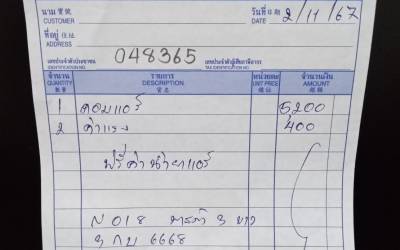 นาม 寶號 วันที่ 日期 2/11/67
CUSTOMER DATE
ที่อยู่ 住址
ADDRESS
048365
เลขประจำตัวประชาชน เลขประจำตัวผู้เสียภาษีอากร
IDENTIFICATION NO. TAX IDENTIFICATION NO.
จำนวน รายการ หน่วยละ จำนวนเงิน
QUANTITY DESCRIPTION UNIT PRICE AMOUNT
數量 貨名
1 คอมแอร์ 5,200
2 ค่าแรง 400
ฟรีค่าน้ำยาแอร์
6668